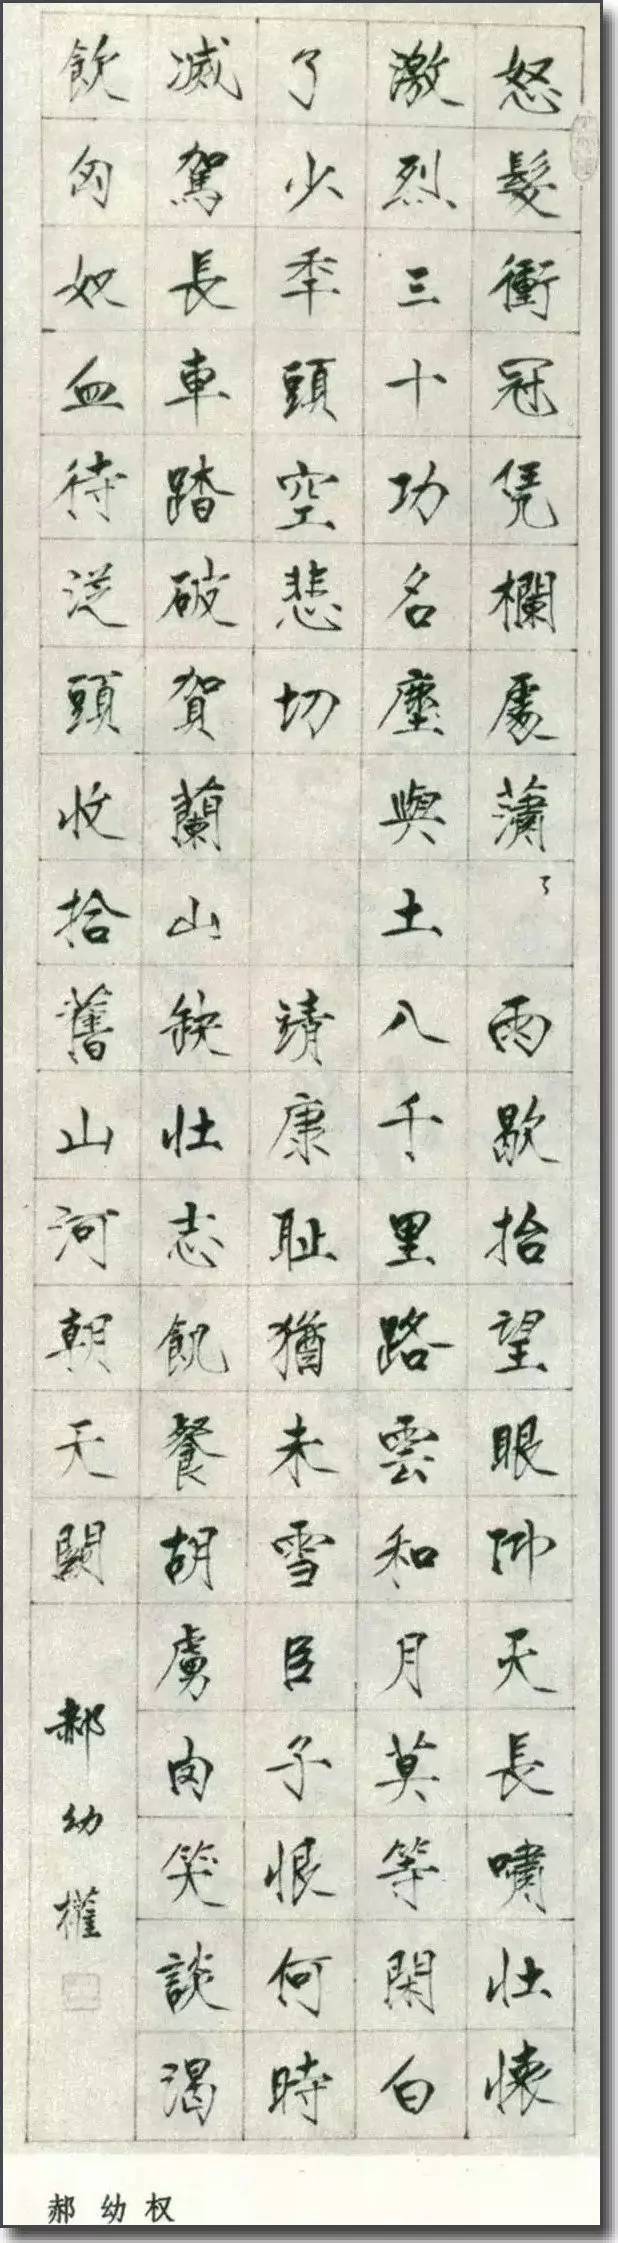 怒髮衝冠凭欄處蕭〻雨歇抬望眼仰天長嘯壯懷
激烈三十功名塵與土八千里路雲和月莫等閑白
了少年頭空悲切 靖康耻猶未雪臣子恨何時
滅駕長車踏破賀蘭山缺壯志飢餐胡虜肉笑談渴
飲匈奴血待從頭收拾舊山河朝天闕
郝幼權
郝幼权